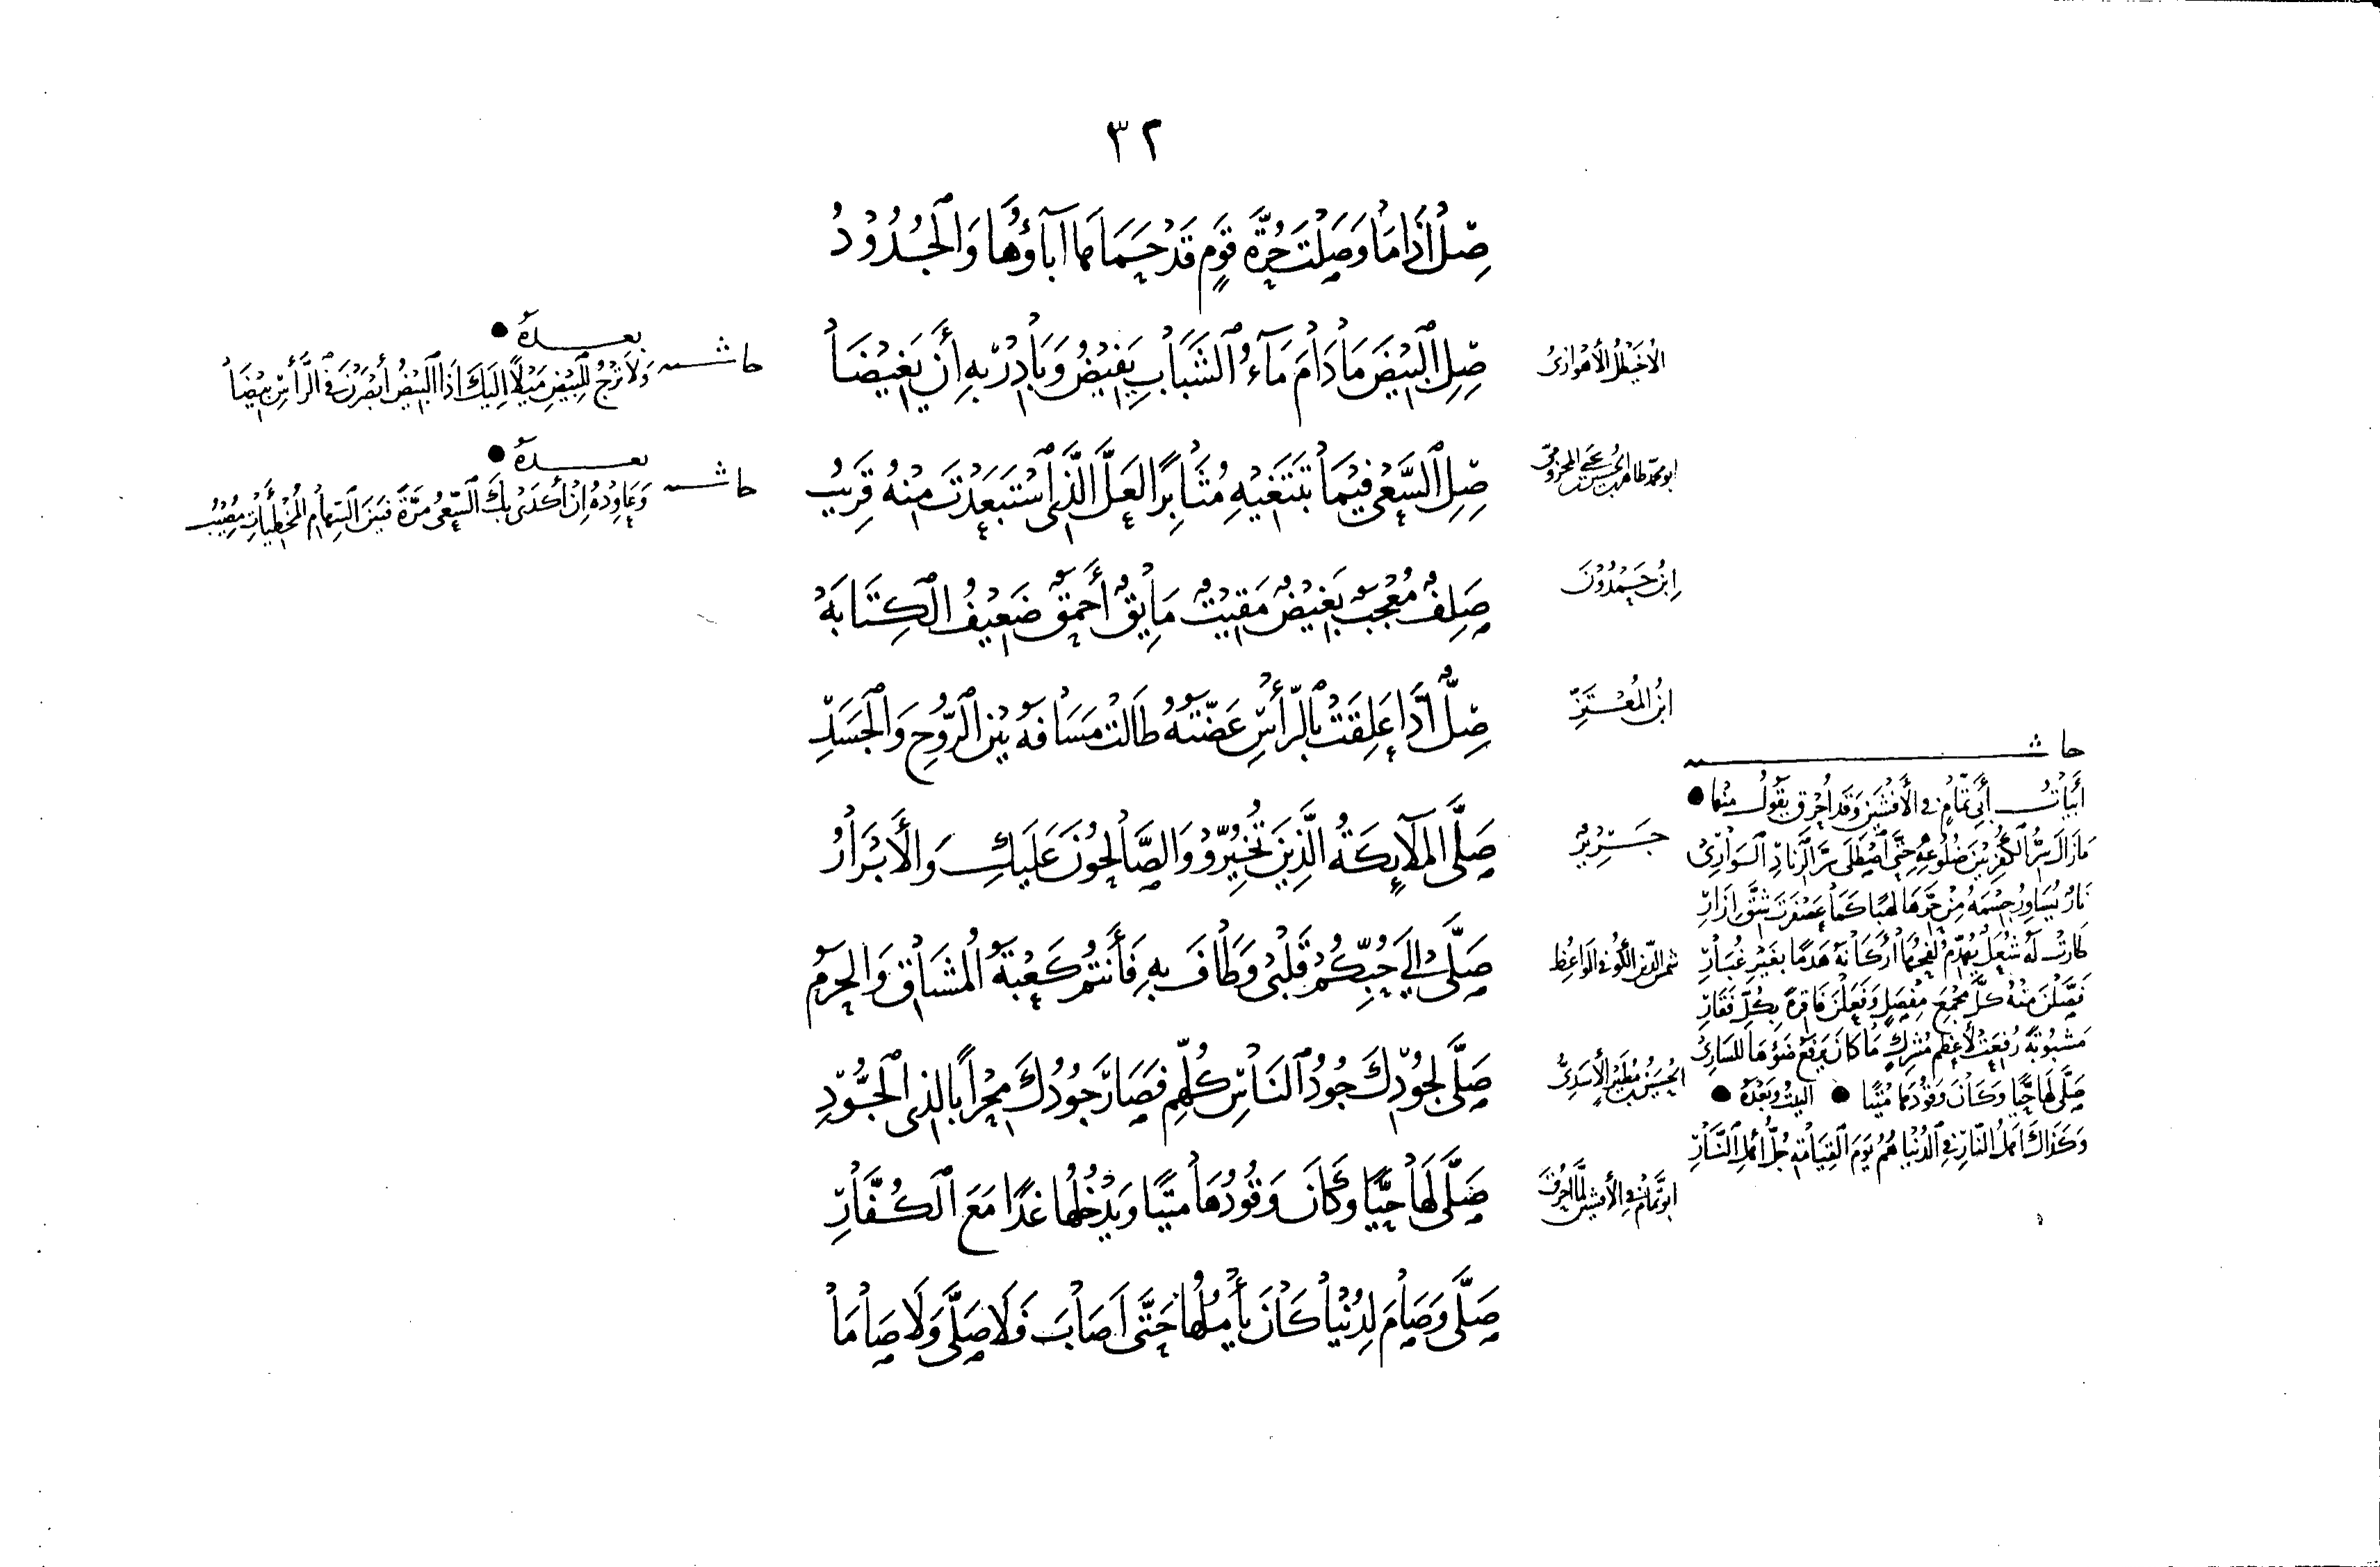 ٣٢
صِلْ إِذَا مَا وَصَلْتَ حُرَّةَ قَوْمٍ قَدْ حَمَاهَا آبَاؤُهَا وَالْجُدُوْدُ
الأُخَيْطِلُ الأَهْوَازِيُّ
صِلِ الْبِيْضَ مَا دَامَ مَآءُ الشَّبَابِ يَفِيْضُ وَبَادِرْ بِهِ أَنْ يَغِيْضَا
حاشـــــــة
بعـــــدهُ ●
وَلَا تَرْجُ لِلْبِيْضِ مَيْلًا إِلَيْكَ إِذَا الْبِيْضُ أَبْصَرْنَ فِي الرَّأْسِ بِيْضَا
ابو محمد طاهر بن الحسين بن يحيى المخزومي
صِلِ السَّعْيَ فِيْمَا تَبْتَغِيْهِ مُثَابِرًا لَعَلَّ الَّذِي اسْتَبْعَدْتَ مِنْهُ قَرِيْبُ
حاشـــــــة
بعـــــدهُ ●
وَعَاوِدْهُ إِنْ أَكْدَى بِكَ السَّعْيُ مَرَّةً فَبَيْنَ السِّهَامِ الْمُخْطِيَاتِ مُصِيْبُ
اِبْنُ حَمْدُوْنَ
صَلِفٌ مُعْجِبٌ بَغِيْضٌ مَقِيْتٌ مَايِقٌ أَحْمَقٌ ضَعِيْفُ الْكِتَابَهْ
ابْنُ الْمُعْتَزِّ
صِلٌّ إِذَا عَلِقَتْ بِالرَّأْسِ عَضَّتُهُ طَالَتْ مَسَافَةُ بَيْنِ الرُّوْحِ وَالْجَسَدِ
جَــرِيْرٌ
صَلَّى الْمَلَآيِكَةُ الَّذِيْنَ تُخُيِّرُوْا وَالصَّالِحُوْنَ عَلَيْكِ وَالأَبْرَارُ
شمس الدين الكوفي الواعظ
صَلَّى إِلَى حُبِّكُمْ قَلْبِيْ وَطَافَ بِهِ فَأَنْتُمُ كَعْبَةُ الْمُشْتَاقِ وَالْحَرَمُ
الحسين بن مطير الأسدي
صَلَّى لِجُوْدِكَ جُوْدُ النَّاسِ كُلِّهِمِ فَصَارَ جُوْدُكَ مِحْرَابَ الْجُوْدِ
ابو تمام في الأفشين لما احرق
صَلَّى لَهَا حَيًّا وَكَانَ وَقُوْدُهَا مَيْتًا وَيَدْخُلُهَا غَدًا مَعَ الْكُفَّارِ
صَلَّى وَصَامَ لِدُنْيَا كَانَ يَأْمُلُهَا حَتَّى أَصَابَ فَلَا صَلَّى وَلَا صَامَا
حاشـــــــة
أَبْيَاتُ أَبِي تَمَّامٍ فِي الأَفْشِيْنِ وَقَدْ أُحْرِقَ يَقُوْلُ مِنْهَا ●
مَا زَالَ سِرُّ الْكُفْرِ بَيْنَ ضُلُوْعِهِ حَتَّى اصْطَلَى سِرَّ الزِّنَادِ الْوَارِيْ
نَارٌ يُسَاوِرُ جِسْمَهُ مِنْ حَرِّهَا لَهَبًا كَمَا عَصْفَرْتَ شِقَّ إِزَارِ
طَارَتْ لَهُ شُعَلٌ يُهَدِّمُ لَفْحُهَا أَرْكَانَهُ هَدْمًا بِغَيْرِ غُبَارِ
فَصَّلْنَ مِنْهُ كُلَّ مَجْمَعِ مَفْصِلٍ وَفَعَلْنَ فَاقِرَةً بِكُلِّ فَقَارِ
مَشْبُوْبَةً رُفِعَتْ لِأَعْظَمِ مُشْرِكٍ مَا كَانَ يَرْفَعُ ضَوْءَهَا لِلسَّارِيْ
صَلَّى لَهَا حَيًّا وَكَانَ وَقُوْدُهَا مَيْتًا ● البيت وَبَعْدَهُ ●
وَكَذَاكَ أَهْلُ النَّارِ فِي الدُّنْيَا هُمُ يَوْمَ الْقِيَامَةِ جُلُّ أَهْلِ النَّارِ